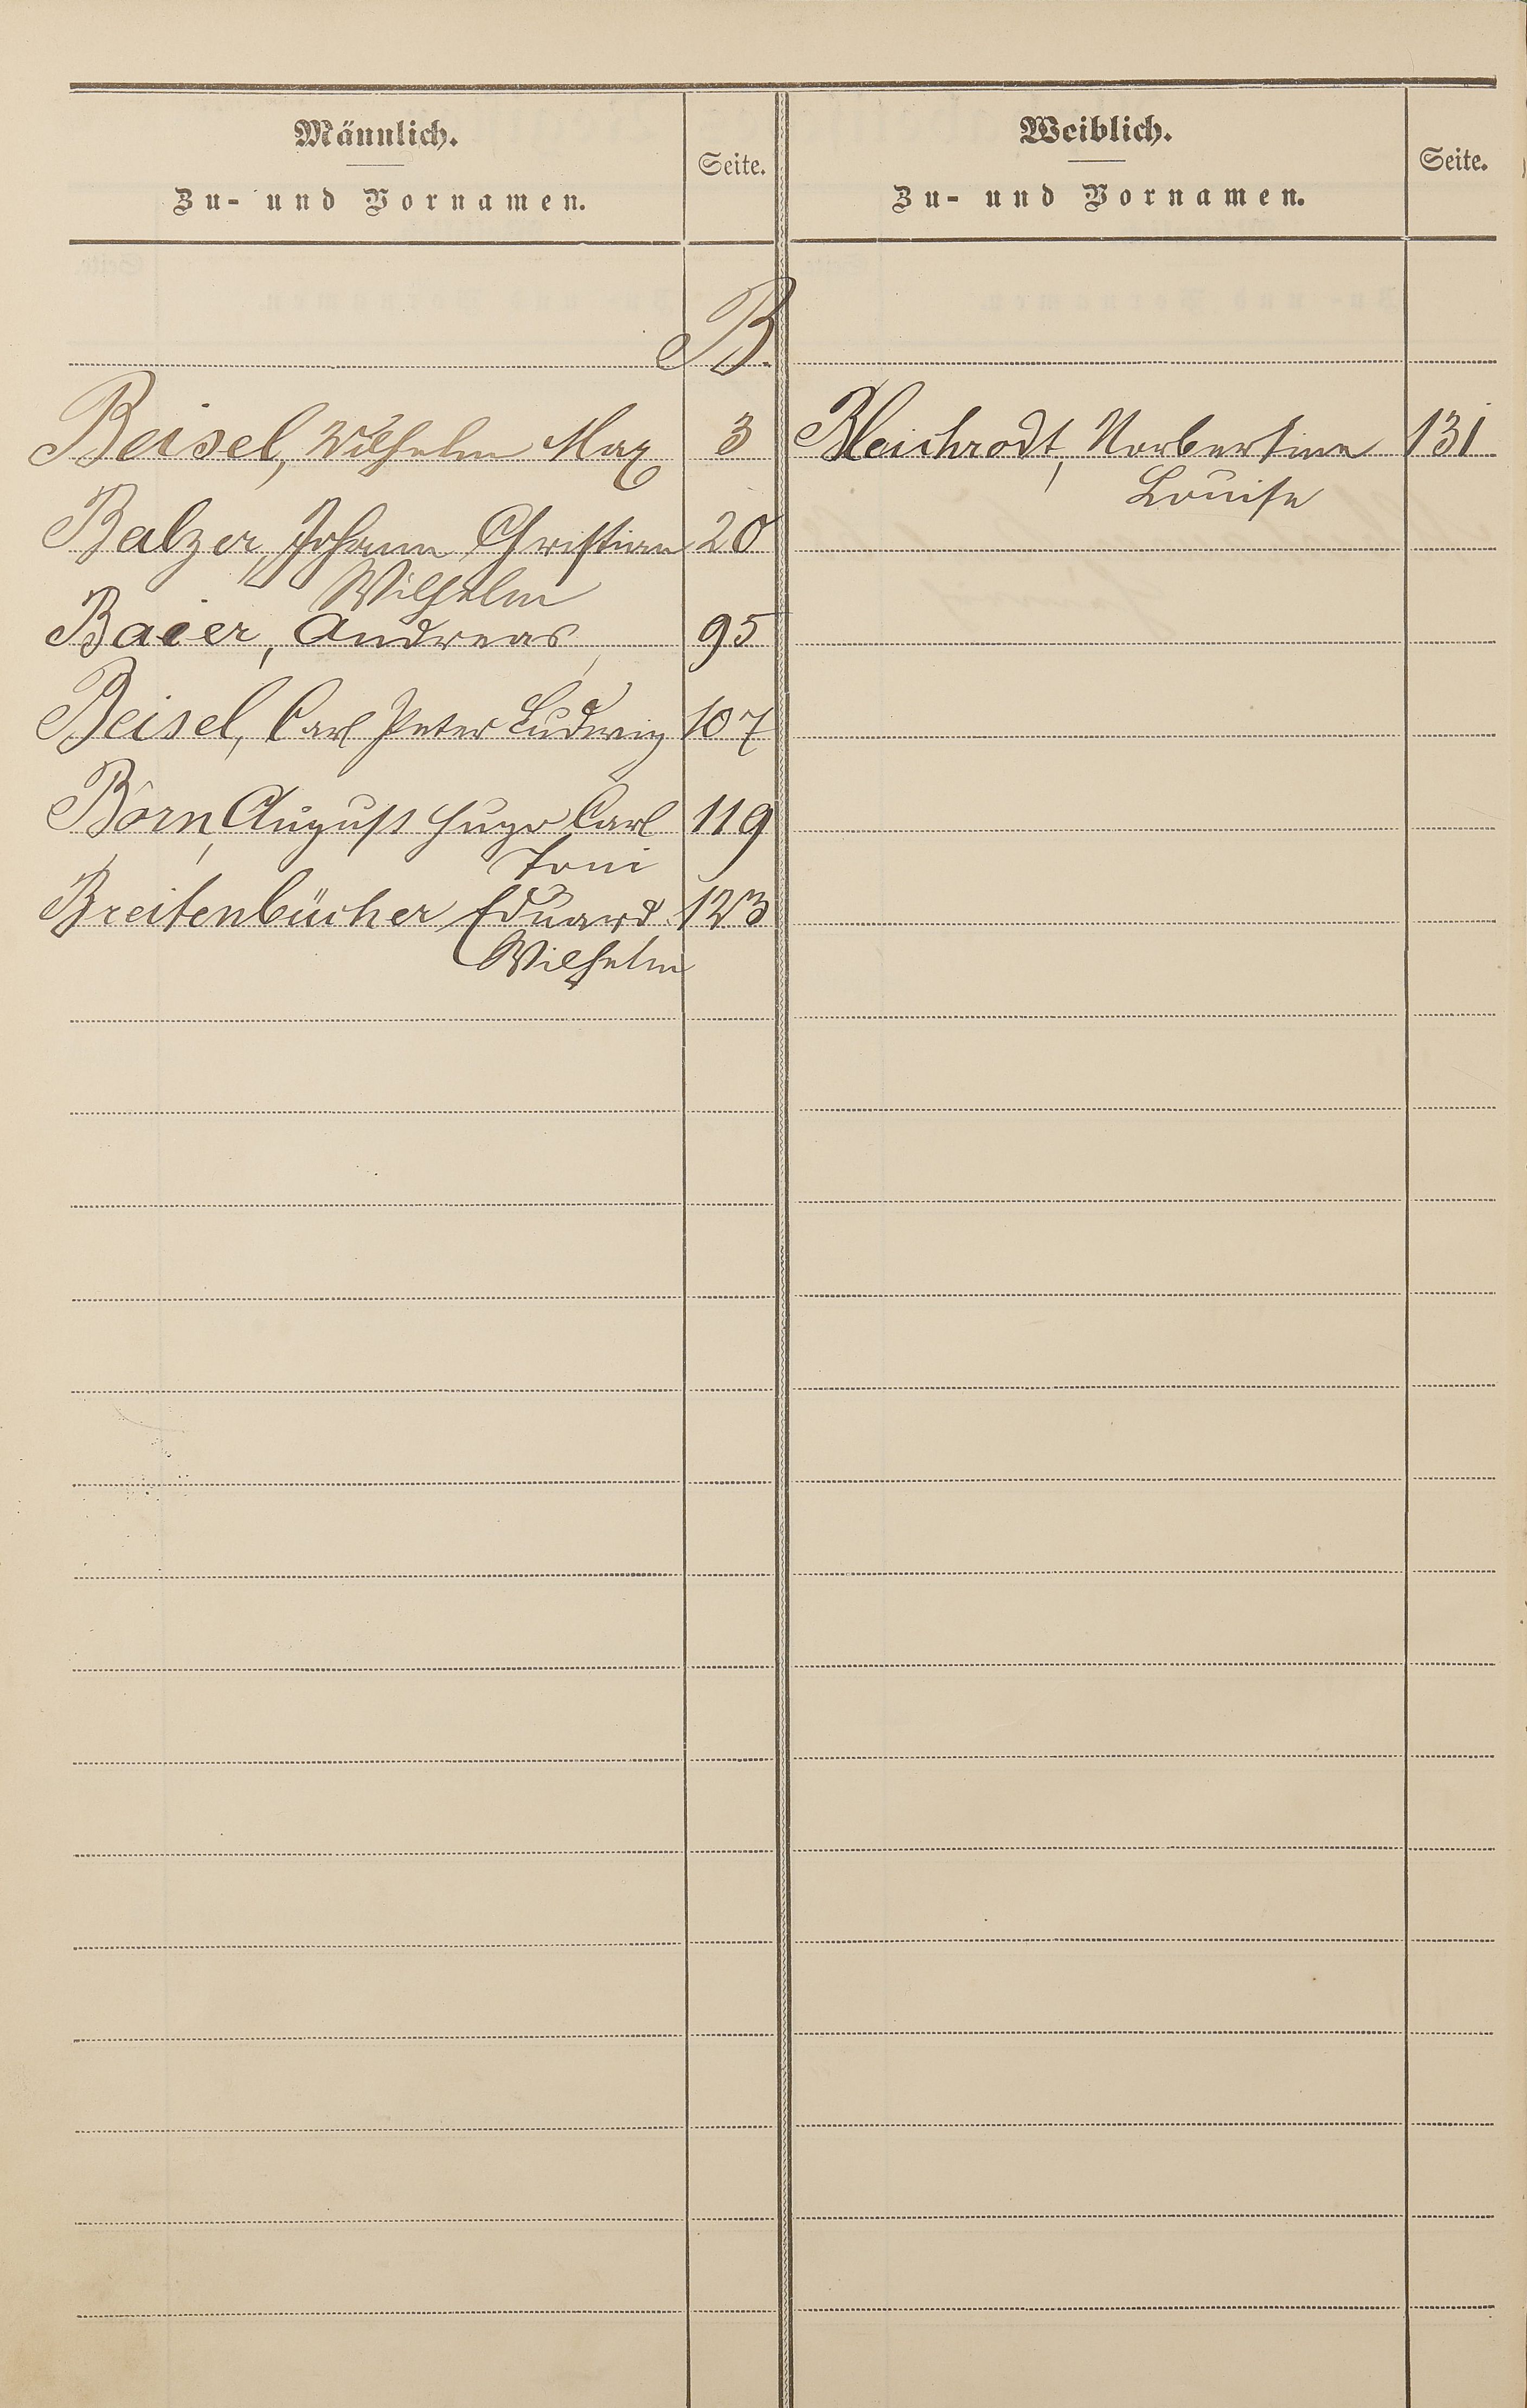 Männlich.
Zu- und Vornamen.
Seite.
Weiblich.
Zu- und Vornamen.
Seite.
B.
Beisel, Wilhelm Max 3
Bleichrodt, Norbertine 131
Louise
Balzer, Johann Christian 20
Wilhelm
Baier, Andreas, 95
Beisel, Carl Peter Ludwig 107
Born, August Hugo Carl 119
Toni
Breitenbücher Eduard 123
Wilhelm